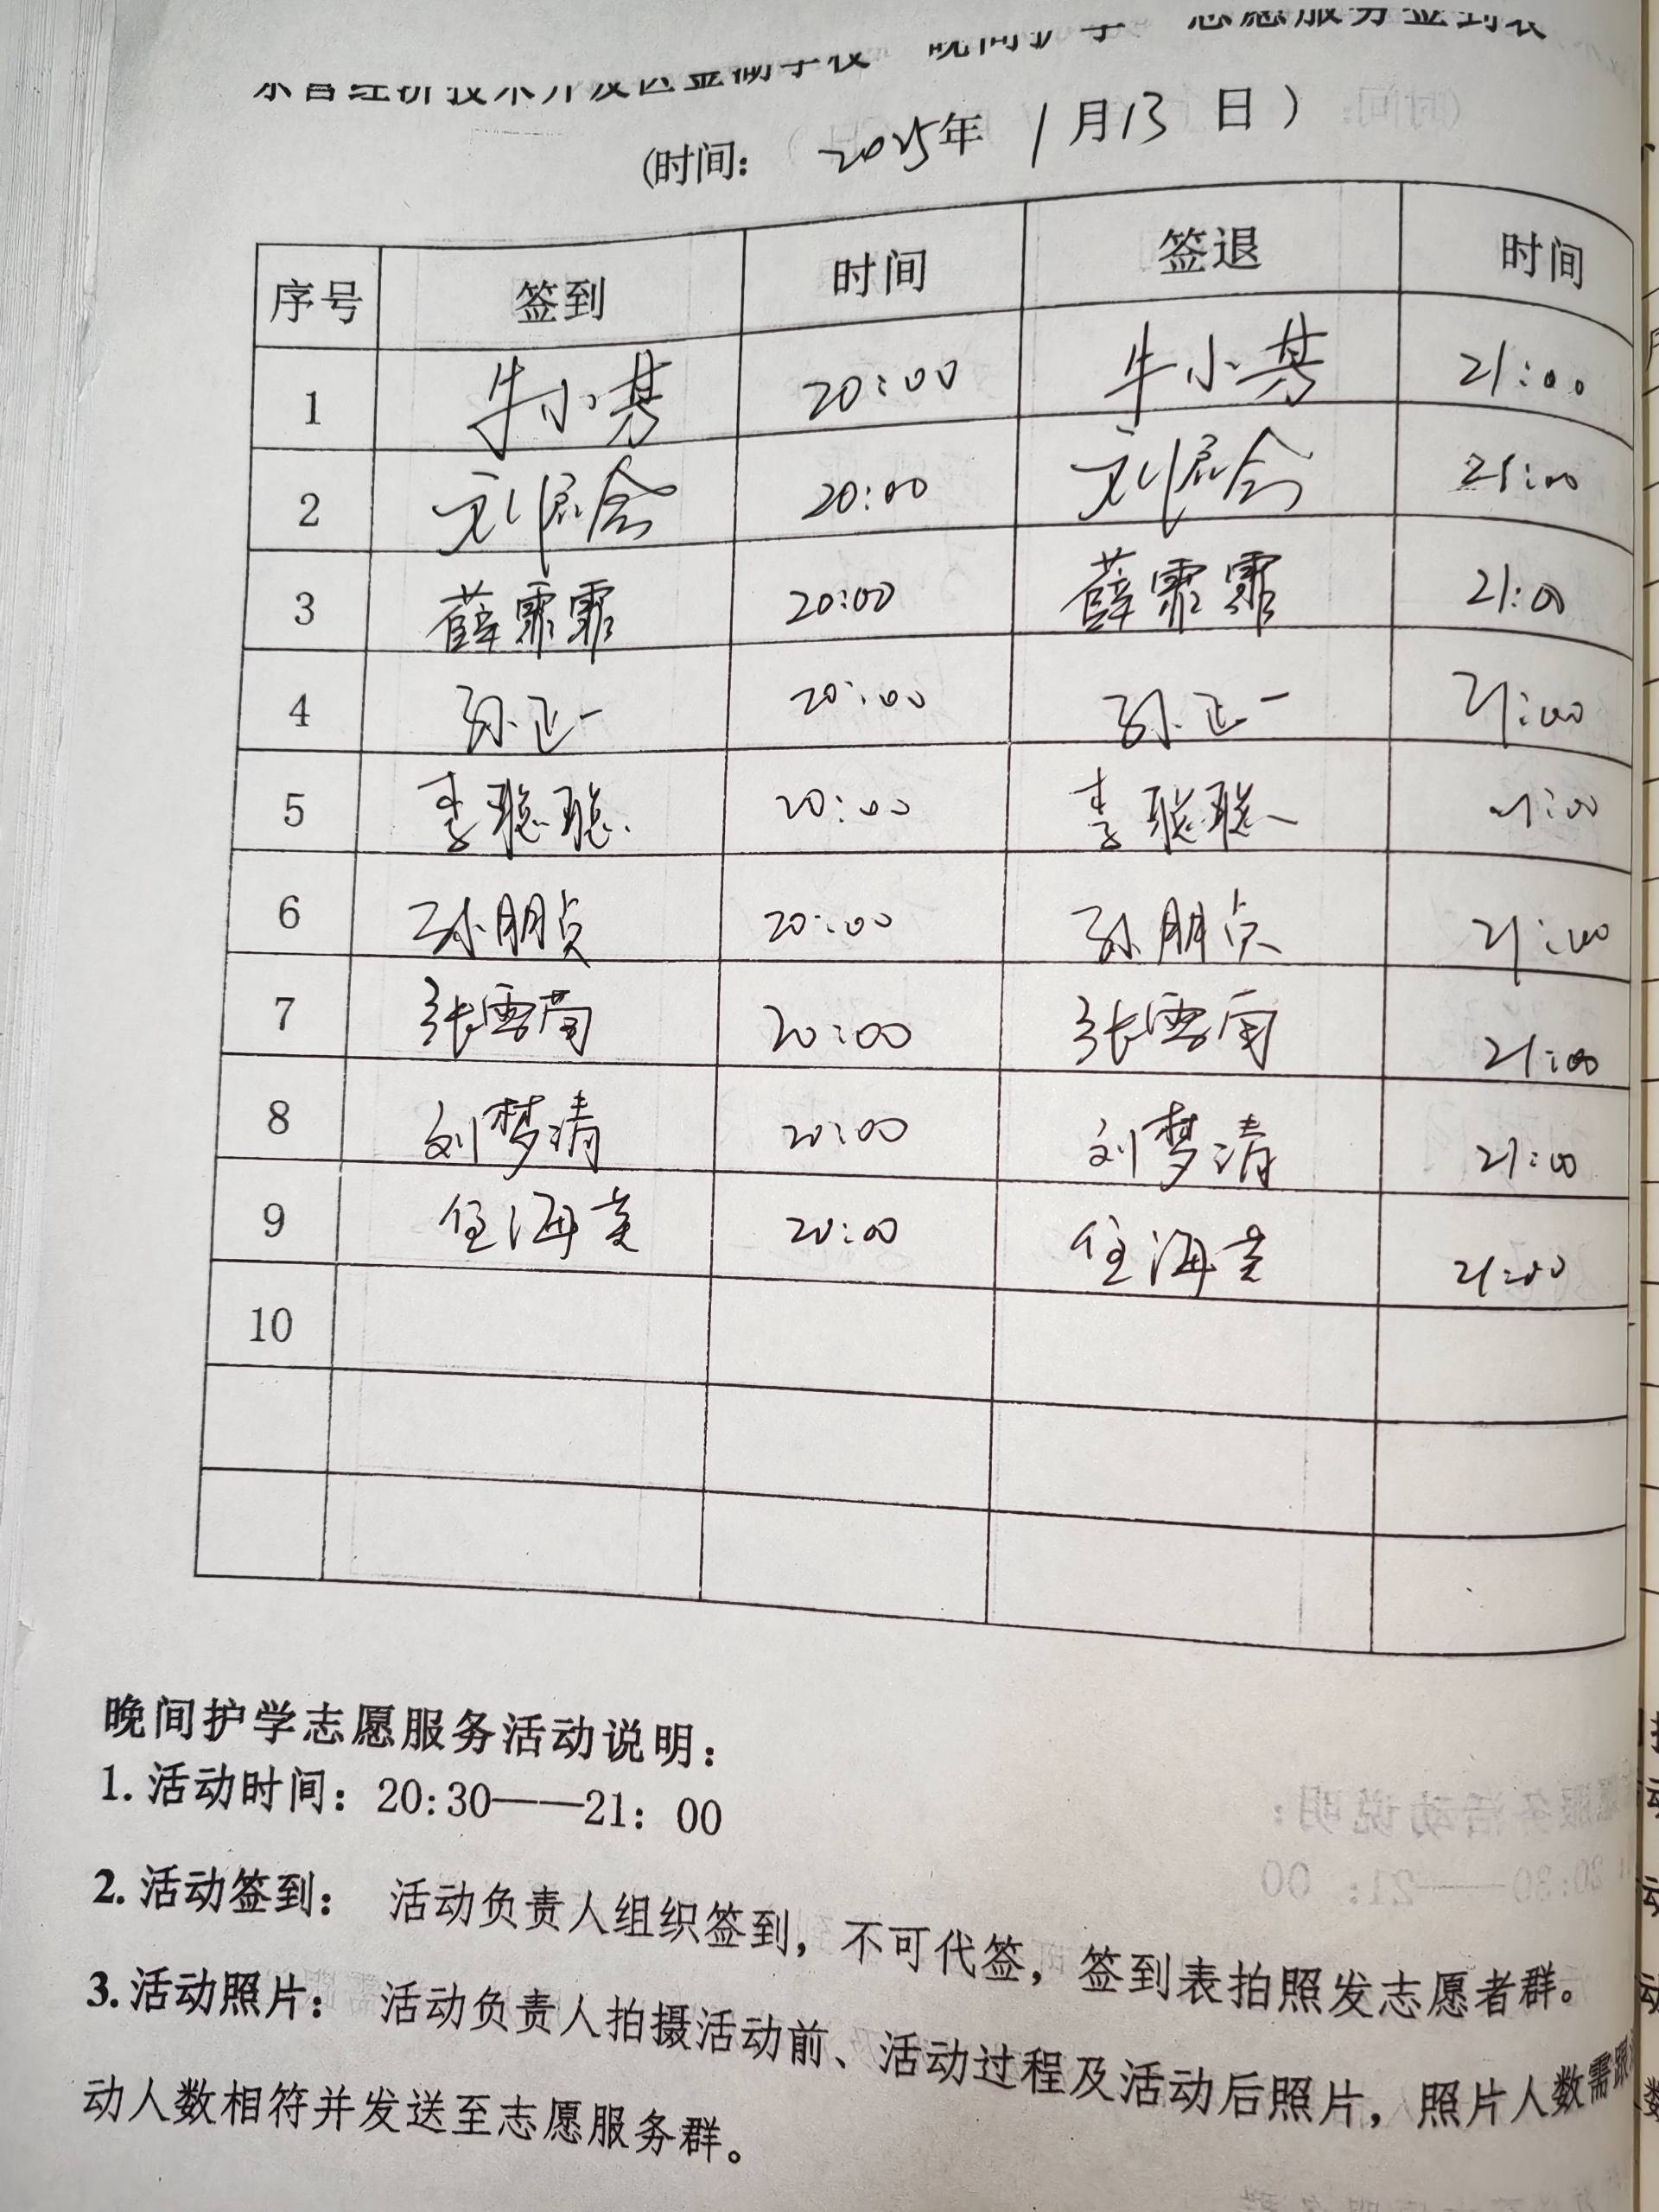 晚间护学 志愿服务签到表
经济技术开发区金湖学校
(时间: 2025年 1月13日)
序号 签到 时间 签退 时间
1 牛小芬 20:00 牛小芬 21:00
2 20:00 21:00
3 薛霏霏 20:00 薛霏霏 21:00
4 孙正一 20:00 孙正一 21:00
5 李聪聪 20:00 李聪聪 21:00
6 孙朋贞 20:00 孙朋贞 21:00
7 20:00 21:00
8 刘梦清 20:00 刘梦清 21:00
9 20:00 21:00
10
晚间护学志愿服务活动说明:
1. 活动时间: 20:30——21: 00
2. 活动签到: 活动负责人组织签到, 不可代签, 签到表拍照发志愿者群。
3. 活动照片: 活动负责人拍摄活动前、活动过程及活动后照片, 照片人数需跟
动人数相符并发送至志愿服务群。